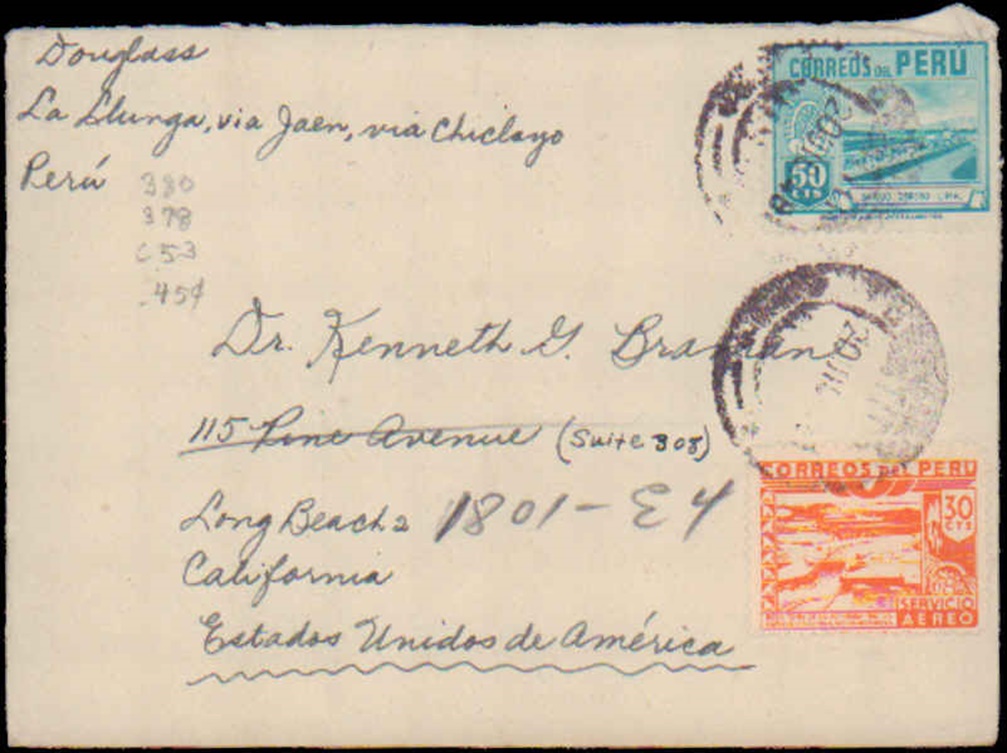 Douglass
La Llunga, via Jaen, via Chiclayo
Perú
380
378
.45¢
CORREOS DEL PERÚ
50
CTS
20 JUL
Dr. Kenneth G.
20 JUL
115 Pine Avenue (Suite 308)
Long Beach 2 1801 - E 4
California
Estados Unidos de América
CORREOS DEL PERU
30
CTS
SERVICIO
AEREO